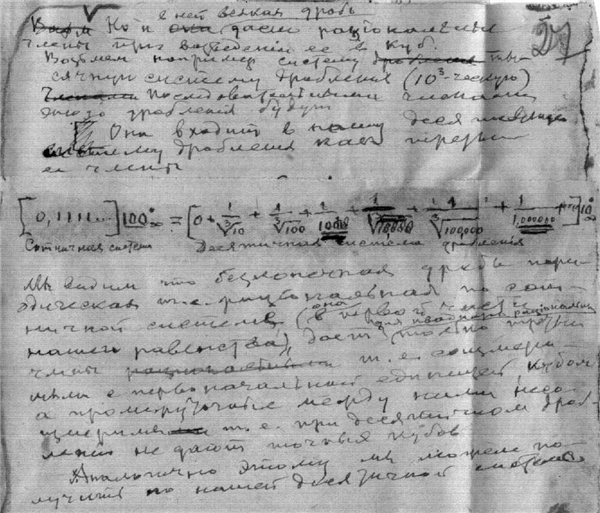 с ней всякая дробь
Но и она даст рациональные
члены при возведении ее в куб.
Возьмем например систему дробления ты-
сячную систему дробления (10³-ческую)
Членами последовательными
этого дробления будут
Она входит в нашу десятичную
систему дробления как третьи
ее члены
27
[0,1111...]100∞ = [0 + 1/∛10 + 1/∛100 + 1/1000 + 1/∛10000 + 1/∛100000 + 1/1,000000 + ...]10∞
Сотничная система Десятичная система дробления
Мы видим что бесконечная дробь пери-
одическая т.е. рациональная по сот-
ничной системе (она в первой части
нашего равенства), дает только третьи
члены т. е. соизмери-
мыми с первоначальной единицей кубом
а промежуточные между ними несо-
измеримы т. е. при десятичном дроб-
лении не дают точных кубов
Аналогично этому мы можем по-
лучить по нашей десятичной системе